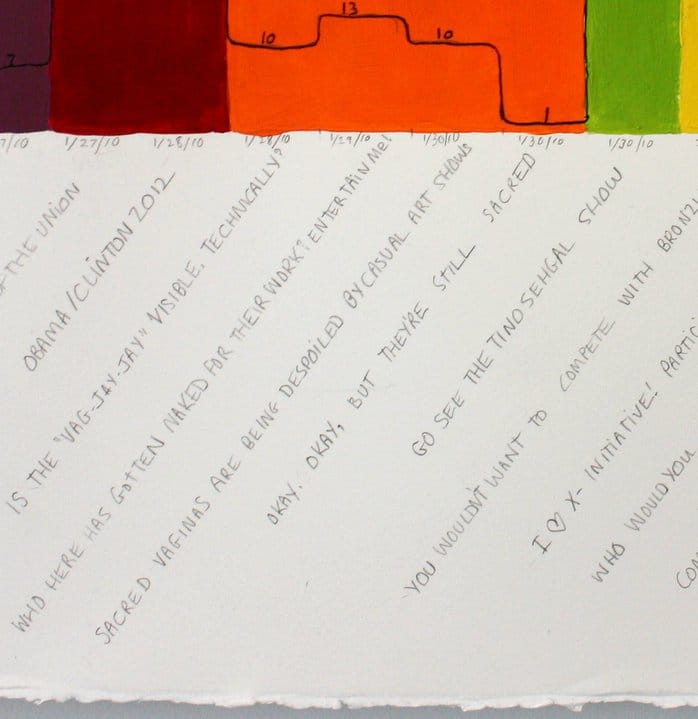 7
10
13
10
1
7/10
1/27/10
1/28/10
1/28/10
1/29/10
1/30/10
1/30/10
1/30/10
OF THE UNION
OBAMA/CLINTON 2012
IS THE "VAG-JAY-JAY" VISIBLE, TECHNICALLY?
WHO HERE HAS GOTTEN NAKED FOR THEIR WORK? ENTERTAIN ME!
SACRED VAGINAS ARE BEING DESPOILED BY CASUAL ART SHOWS
OKAY. OKAY, BUT THEY'RE STILL SACRED
GO SEE THE TINO SEHGAL SHOW
YOU WOULDN'T WANT TO COMPETE WITH
I ♡ X-INITIATIVE!
WHO WOULD YOU